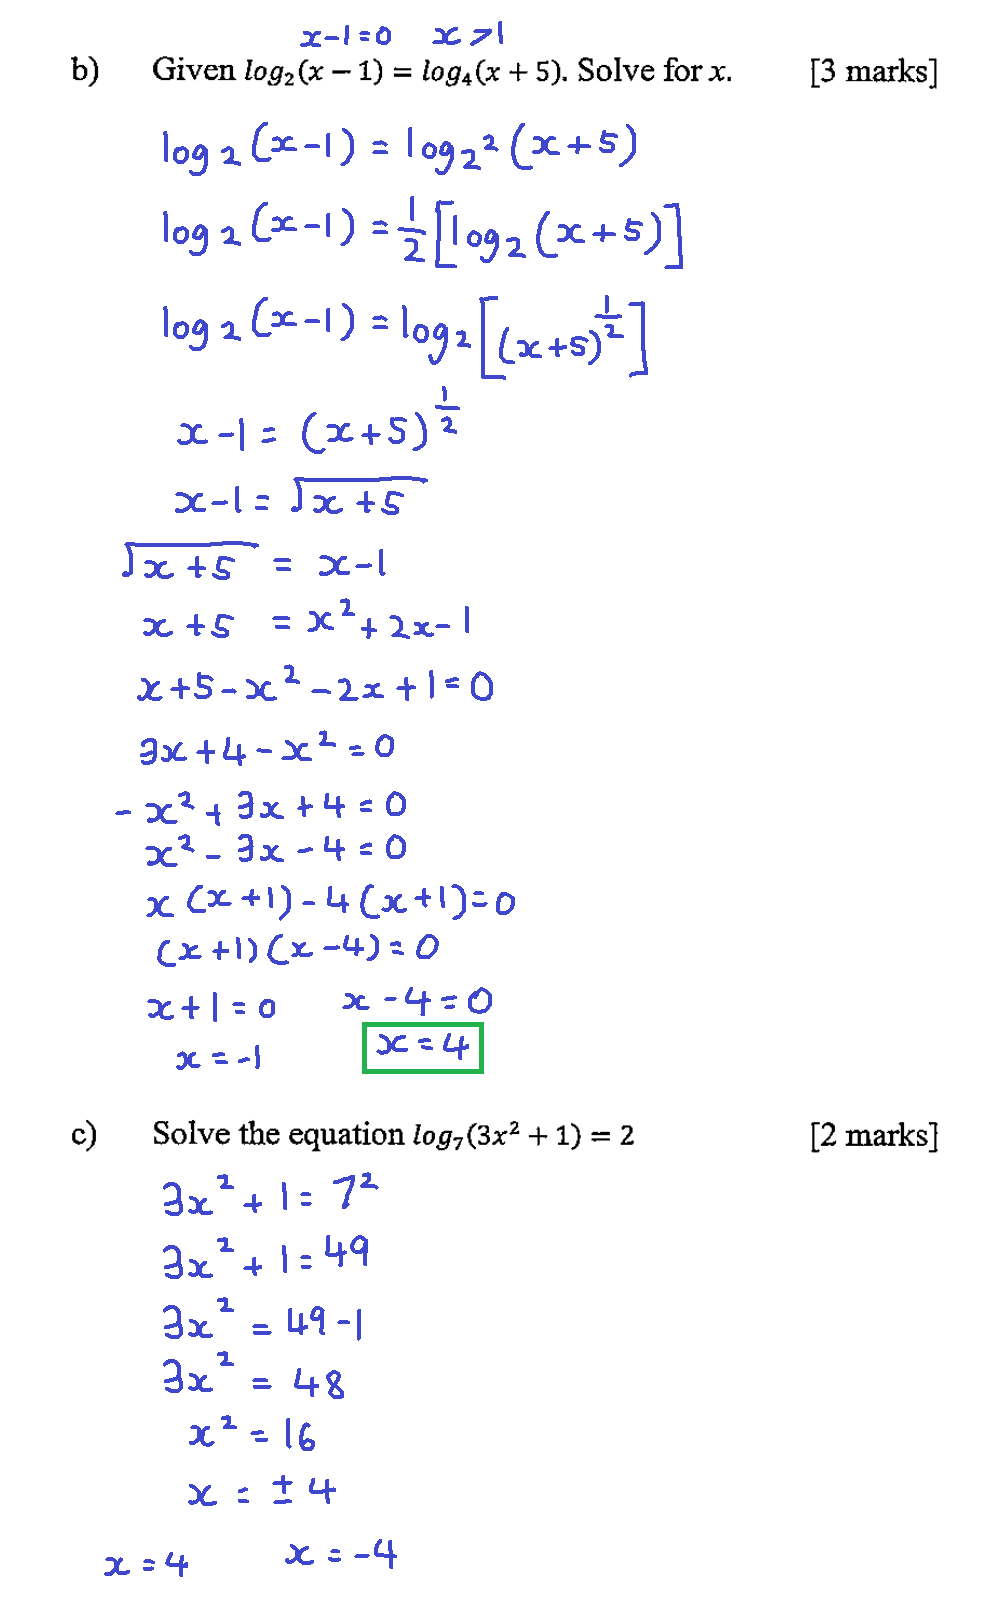 x-1=0 x>1
b) Given log₂(x − 1) = log₄(x + 5). Solve for x. [3 marks]
log₂(x-1) = log₂²(x+5)
log₂(x-1) = 1/2[log₂(x+5)]
log₂(x-1) = log₂[(x+5)^1/2]
x-1 = (x+5)^1/2
x-1 = √x+5
√x+5 = x-1
x+5 = x²+2x-1
x+5-x²-2x+1=0
3x+4-x²=0
-x²+3x+4=0
x²-3x-4=0
x(x+1)-4(x+1)=0
(x+1)(x-4)=0
x+1=0 x-4=0
x=-1 x=4
c) Solve the equation log₇(3x² + 1) = 2 [2 marks]
3x²+1=7²
3x²+1=49
3x²=49-1
3x²=48
x²=16
x=±4
x=4 x=-4